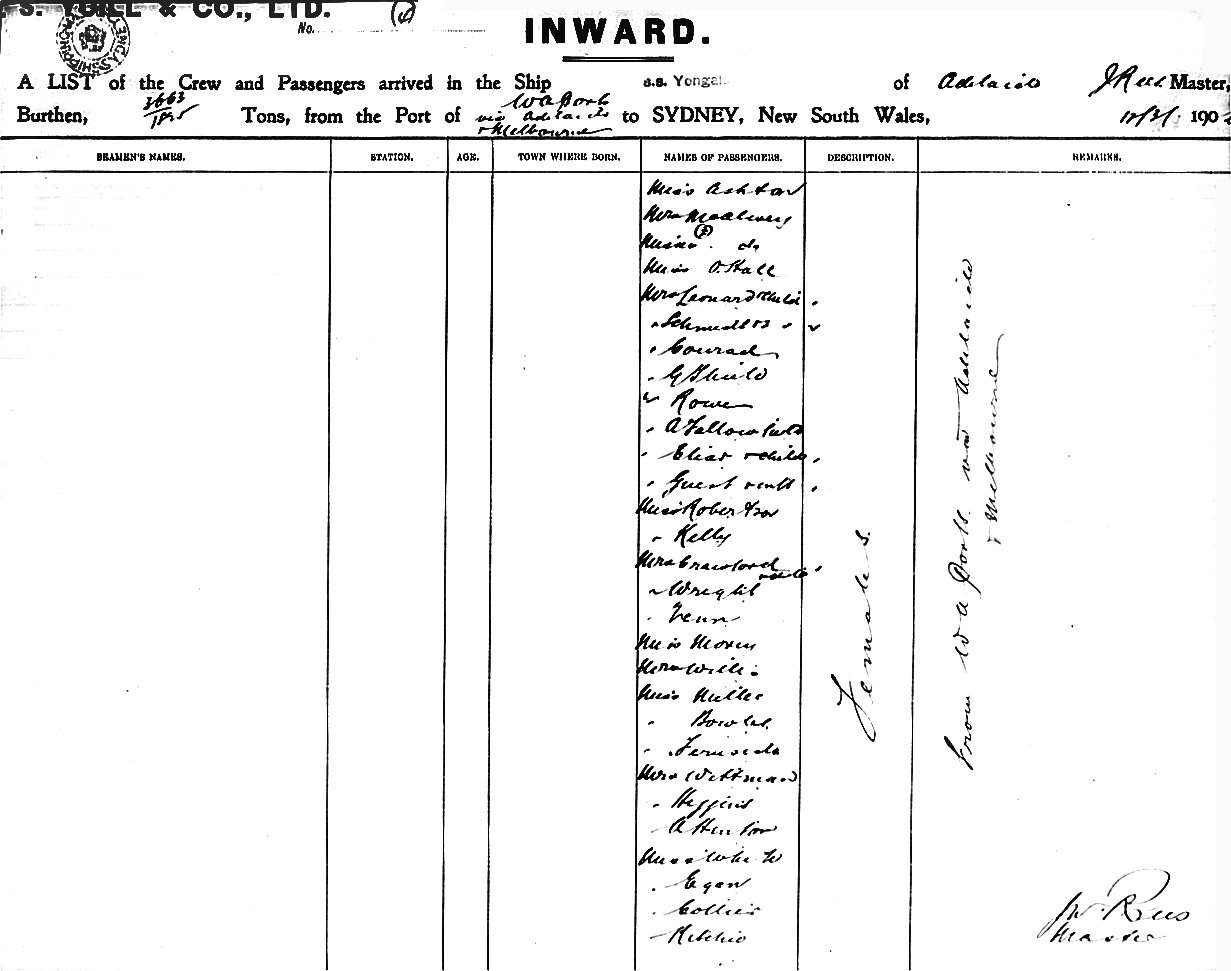 & CO., LTD.
No.
INWARD.
A LIST of the Crew and Passengers arrived in the Ship s.s. Yongal of Adelaide J Rees Master,
Burthen, 3663/1825 Tons, from the Port of W A Ports via Adelaide & Melbourne to SYDNEY, New South Wales, 190
SEAMEN'S NAMES. STATION. AGE. TOWN WHERE BORN. NAMES OF PASSENGERS. DESCRIPTION. REMARKS.
Miss Ashton
Mrs
Misses (2) do
Miss O. Hall
Mrs Leonard & child
" Schmedt
" Conrad
" G Shield
" Rowe
" A Fallowfield
" Elias & child
" Guest & inft
Miss Robertson
" Kelly
Mrs Crawford
" Wright
" Fenn
Miss Moren
Mrs Willis
Miss Miller
" Bowler
"
Mrs Wittman
" Higgins
A Henton
Miss White
" Egan
" Collier
" Ritchie
Females.
From W A Ports via Adelaide
& Melbourne
W. Rees
Master